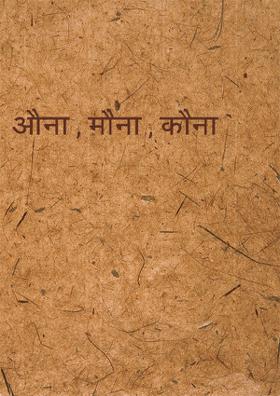 औना , मौना , कौना